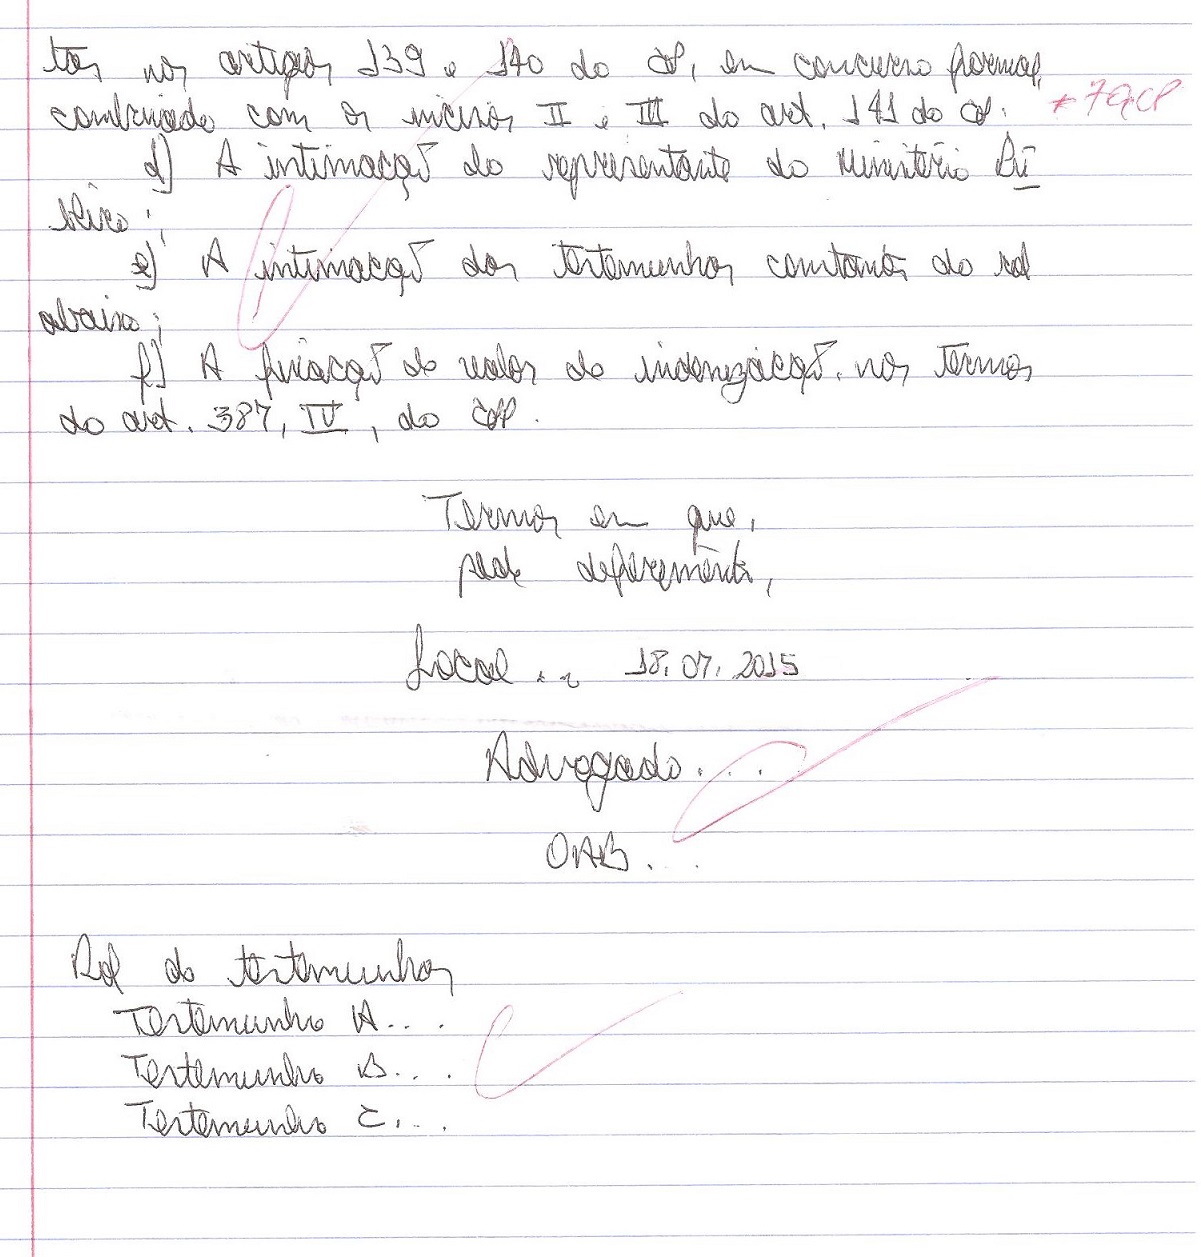 tos nos artigos 139 e 140 do CP, em concurso formal,
combinado com os incisos II e III do art. 141 do CP. + 70, CP
d) A intimação do representante do Ministério Pú
blico;
e) A intimação das testemunhas constantes do rol
abaixo;
f) A fixação de valor de indenização, nos termos
do art. 387, IV, do CPP.
Termos em que,
pede deferimento,
Local... 18.07.2015
Advogado...
OAB...
Rol de testemunhas
Testemunha A...
Testemunha B...
Testemunha C...